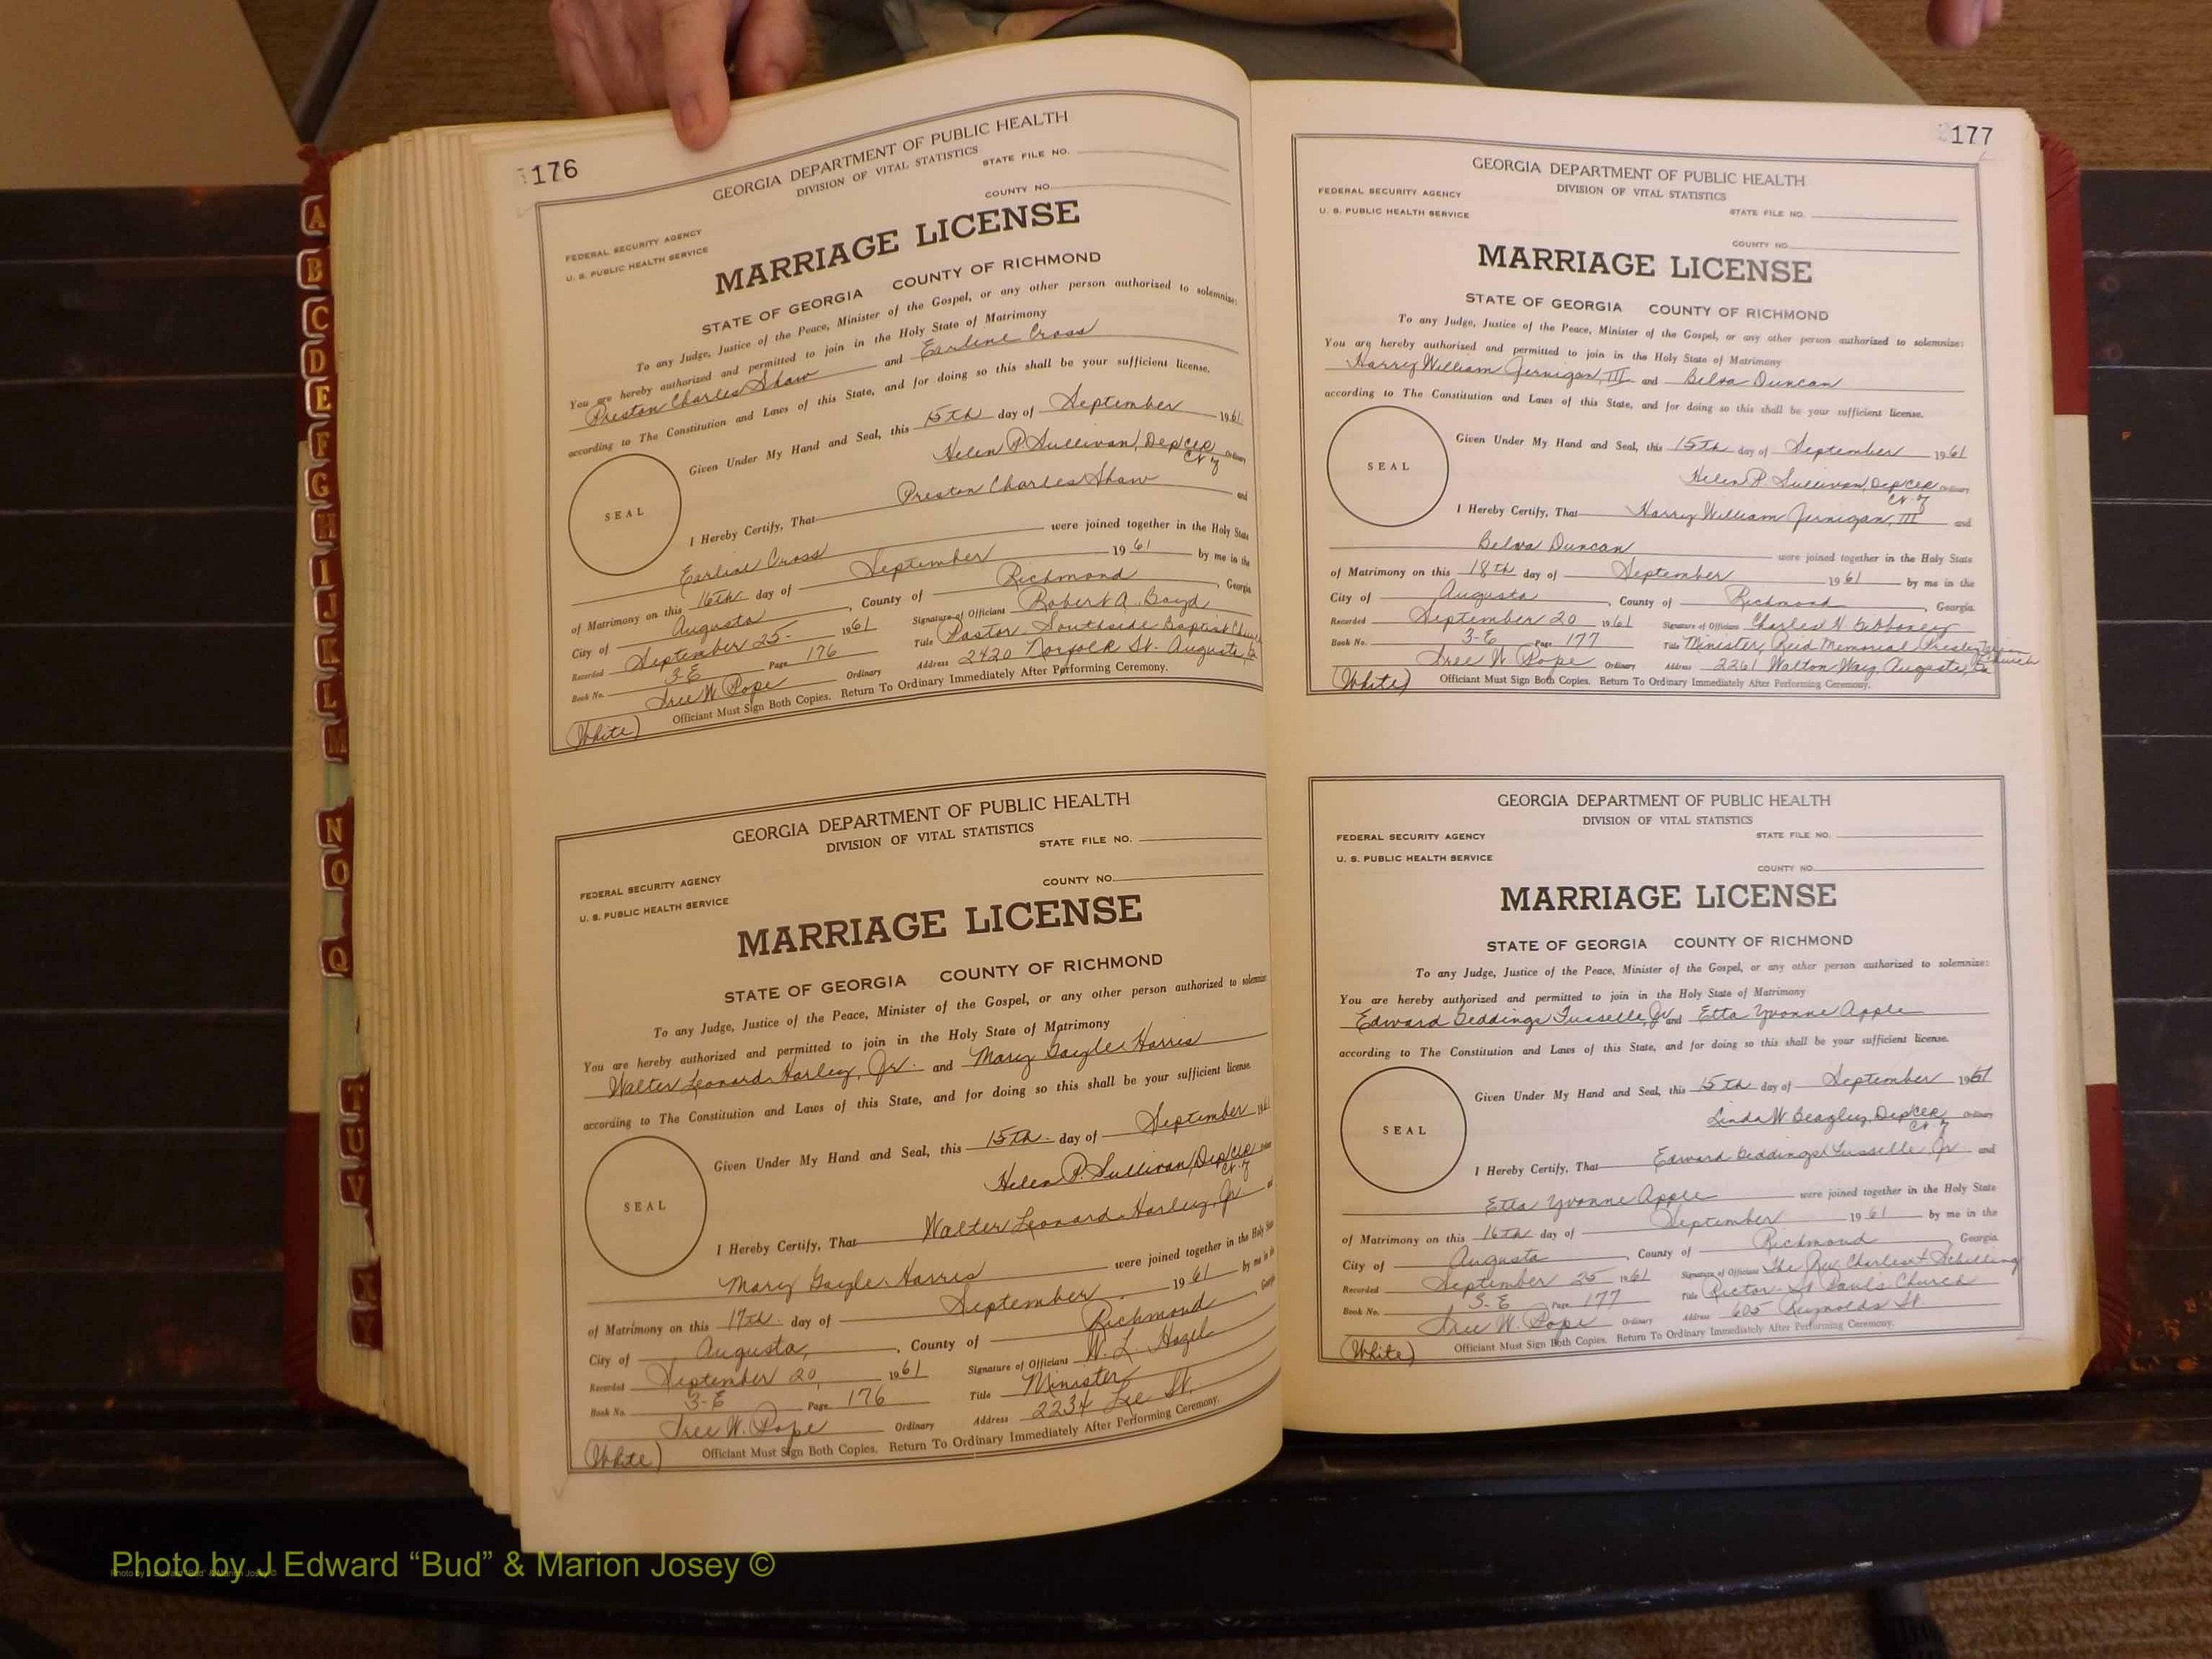 A
B
C
D
E
F
G
H
I
J
K
L
M
N
O
Q
T
U
V
X
Y
176
GEORGIA DEPARTMENT OF PUBLIC HEALTH
DIVISION OF VITAL STATISTICS
STATE FILE NO.
COUNTY NO.
FEDERAL SECURITY AGENCY
U. S. PUBLIC HEALTH SERVICE
MARRIAGE LICENSE
STATE OF GEORGIA COUNTY OF RICHMOND
To any Judge, Justice of the Peace, Minister of the Gospel, or any other person authorized to solemnize:
You are hereby authorized and permitted to join in the Holy State of Matrimony
Preston Charles Shaw and Earline Cross
according to The Constitution and Laws of this State, and for doing so this shall be your sufficient license.
Given Under My Hand and Seal, this 15th day of September 1961
Helen P. Sullivan, Dep Clk Ordinary
SEAL
I Hereby Certify, That Preston Charles Shaw and
Earline Cross were joined together in the Holy State
of Matrimony on this 16th day of September 1961 by me in the
City of Augusta, County of Richmond, Georgia
Recorded September 25 - 1961 Signature of Officiant Robert A. Boyd
Book No. 3-E Page 176 Title Pastor, Southside Baptist Church
Tree W. Pope Ordinary Address 2420 Norfolk St. Augusta, Ga
Officiant Must Sign Both Copies. Return To Ordinary Immediately After Performing Ceremony.
(White)
GEORGIA DEPARTMENT OF PUBLIC HEALTH
DIVISION OF VITAL STATISTICS
STATE FILE NO.
COUNTY NO.
FEDERAL SECURITY AGENCY
U. S. PUBLIC HEALTH SERVICE
MARRIAGE LICENSE
STATE OF GEORGIA COUNTY OF RICHMOND
To any Judge, Justice of the Peace, Minister of the Gospel, or any other person authorized to solemnize
You are hereby authorized and permitted to join in the Holy State of Matrimony
Walter Leonard Harley, Jr. and Mary Gayle Harris
according to The Constitution and Laws of this State, and for doing so this shall be your sufficient license.
Given Under My Hand and Seal, this 15th - day of September 1961
Helen P. Sullivan, Dep Clk
SEAL
I Hereby Certify, That Walter Leonard Harley, Jr.
Mary Gayle Harris were joined together in the Holy State
of Matrimony on this 17th - day of September 1961 by me in the
City of Augusta, County of Richmond
Recorded September 20, 1961 Signature of Officiant W. L. Hazel
Book No. 3-E Page 176 Title Minister
Tree W. Pope Ordinary Address 2234 Lee St.
(White) Officiant Must Sign Both Copies. Return To Ordinary Immediately After Performing Ceremony.
177
GEORGIA DEPARTMENT OF PUBLIC HEALTH
DIVISION OF VITAL STATISTICS
FEDERAL SECURITY AGENCY
U. S. PUBLIC HEALTH SERVICE
STATE FILE NO.
COUNTY NO.
MARRIAGE LICENSE
STATE OF GEORGIA COUNTY OF RICHMOND
To any Judge, Justice of the Peace, Minister of the Gospel, or any other person authorized to solemnize:
You are hereby authorized and permitted to join in the Holy State of Matrimony
Harry William Jernigan, III and Belva Duncan
according to The Constitution and Laws of this State, and for doing so this shall be your sufficient license.
Given Under My Hand and Seal, this 15th day of September 1961
Helen P. Sullivan, Dep Clk Ordinary
SEAL
I Hereby Certify, That Harry William Jernigan, III and
Belva Duncan were joined together in the Holy State
of Matrimony on this 18th day of September 1961 by me in the
City of Augusta, County of Richmond, Georgia.
Recorded September 20 1961 Signature of Officiant Charles N Gibboney
Book No. 3-E Page 177 Title Minister, Reid Memorial Presbyterian Church
Tree W Pope Ordinary Address 2261 Walton Way, Augusta, Ga
(White) Officiant Must Sign Both Copies. Return To Ordinary Immediately After Performing Ceremony.
GEORGIA DEPARTMENT OF PUBLIC HEALTH
DIVISION OF VITAL STATISTICS
FEDERAL SECURITY AGENCY
U. S. PUBLIC HEALTH SERVICE
STATE FILE NO.
COUNTY NO.
MARRIAGE LICENSE
STATE OF GEORGIA COUNTY OF RICHMOND
To any Judge, Justice of the Peace, Minister of the Gospel, or any other person authorized to solemnize:
You are hereby authorized and permitted to join in the Holy State of Matrimony
Edward Geddings Tusselle, Jr and Etta Yvonne Apple
according to The Constitution and Laws of this State, and for doing so this shall be your sufficient license.
Given Under My Hand and Seal, this 15th day of September 1961
Linda W Beazley, Dep Clk Ordinary
SEAL
I Hereby Certify, That Edward Geddings Tusselle, Jr and
Etta Yvonne Apple were joined together in the Holy State
of Matrimony on this 16th day of September 1961 by me in the
City of Augusta, County of Richmond, Georgia
Recorded September 25 1961 Signature of Officiant The Rev. Charles Schilling
Book No. 3-E Page 177 Title Rector - St Pauls Church
Tree W. Pope Ordinary Address 605 Reynolds St.
(White) Officiant Must Sign Both Copies. Return To Ordinary Immediately After Performing Ceremony.
Photo by J Edward “Bud” & Marion Josey ©
Photo by J Edward “Bud” & Marion Josey ©